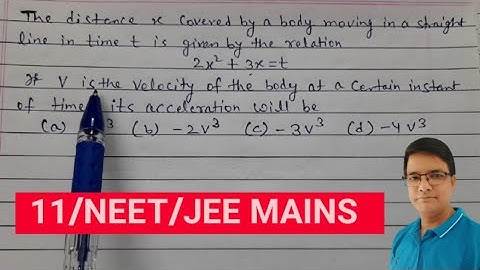 The distance x covered by a body moving in a straight
line in time t is given by the relation
2x² + 3x = t
If V is the velocity of the body at a certain instant
of time its acceleration will be
(a) 3 (b) -2v³ (c) -3v³ (d) -4v³
11/NEET/JEE MAINS